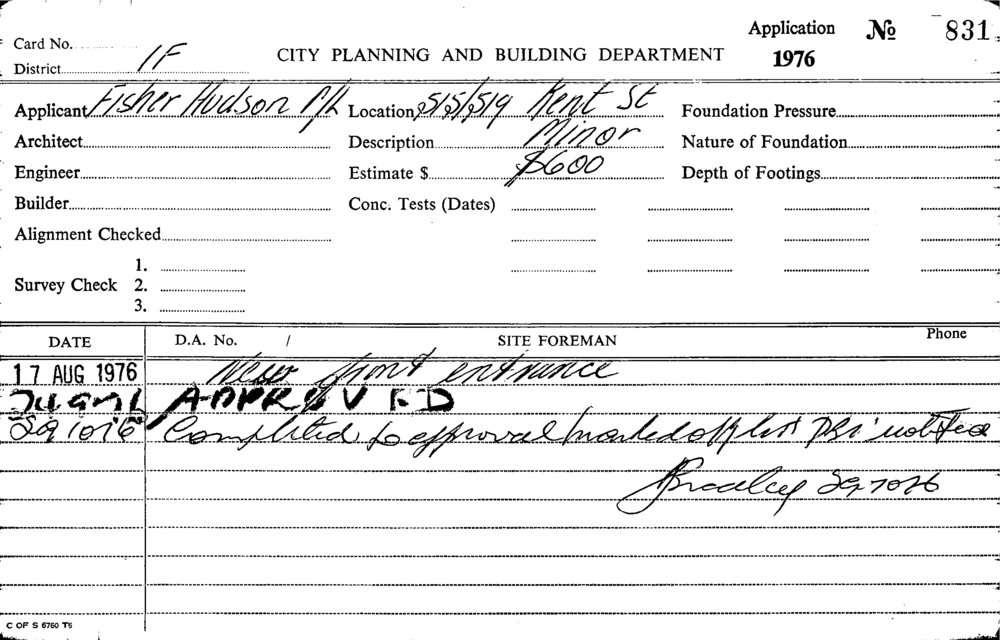 Application No 831
Card No.
1976
CITY PLANNING AND BUILDING DEPARTMENT
District 1F
Applicant Fisher Hudson P/L Location 515/519 Kent St Foundation Pressure
Architect Description Minor Nature of Foundation
Engineer Estimate $ $600 Depth of Footings
Builder Conc. Tests (Dates)
Alignment Checked
1.
Survey Check 2.
3.
DATE D.A. No. / SITE FOREMAN Phone
17 AUG 1976 New front entrance
APPROVED
Completed to approval marked off list
C OF S 6760 T6